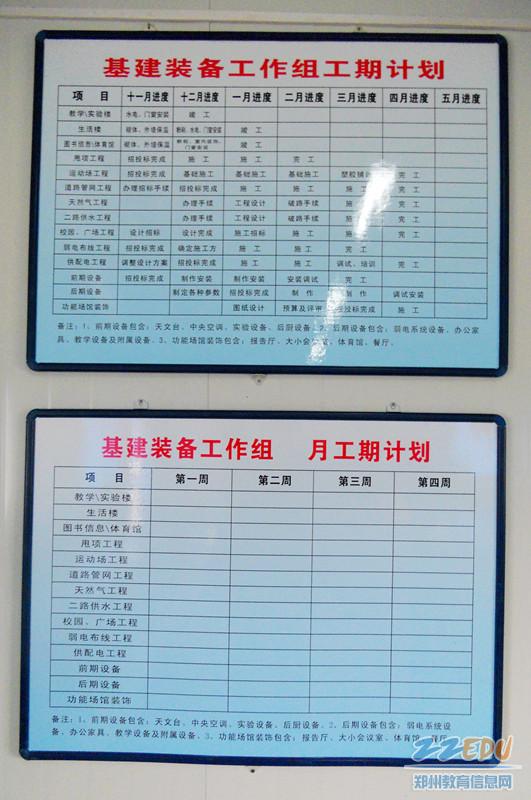 基建装备工作组工期计划
项 目 十一月进度 十二月进度 一月进度 二月进度 三月进度 四月进度 五月进度
教学\实验楼 水电、门窗安装 竣 工
生活楼 砌体、外墙保温 粉刷、水电、门窗安装 竣 工
图书信息\体育馆 砌体、外墙保温 粉刷、室内装饰、门窗安装 竣 工
甩项工程 招投标完成 施 工 施 工 完 工
运动场工程 招投标完成 基础施工 基础施工 基础施工 塑胶铺 完 工
道路管网工程 办理招标手续 招投标完成 施 工 施 工 施 工 完 工
天然气工程 办理手续 工程设计 破路手续 施 工 完 工
二路供水工程 办理手续 工程设计 破路手续 施 工 完 工
校园、广场工程 设计招标 设计完成 施工招标 施 工 施 工 完 工
弱电布线工程 招投标完成 确定施工方 施 工 施 工 完 工
供配电工程 调整设计方案 招投标完成 施 工 施 工 调试、培训 完 工
前期设备 招投标完成 制作安装 制作安装 安装调试 完 工
后期设备 制定各种参数 招投标完成 制 作 制 作 调试安装
功能场馆装饰 图纸设计 预算及评审 招投标完成 施 工
备注：1、前期设备包含：天文台、中央空调、实验设备、后厨设备。2、后期设备包含：弱电系统设备、办公家
具、教学设备及附属设备。3、功能场馆装饰包含：报告厅、大小会议室、体育馆、餐厅。
基建装备工作组 月工期计划
项 目 第一周 第二周 第三周 第四周
教学\实验楼
生活楼
图书信息\体育馆
甩项工程
运动场工程
道路管网工程
天然气工程
二路供水工程
校园、广场工程
弱电布线工程
供配电工程
前期设备
后期设备
功能场馆装饰
备注：1、前期设备包含：天文台、中央空调、实验设备、后厨设备。2、后期设备包含：弱电系统设
备、办公家具、教学设备及附属设备。3、功能场馆装饰包含：报告厅、大小会议室、体育馆、餐厅
ZZEDU
郑州教育信息网